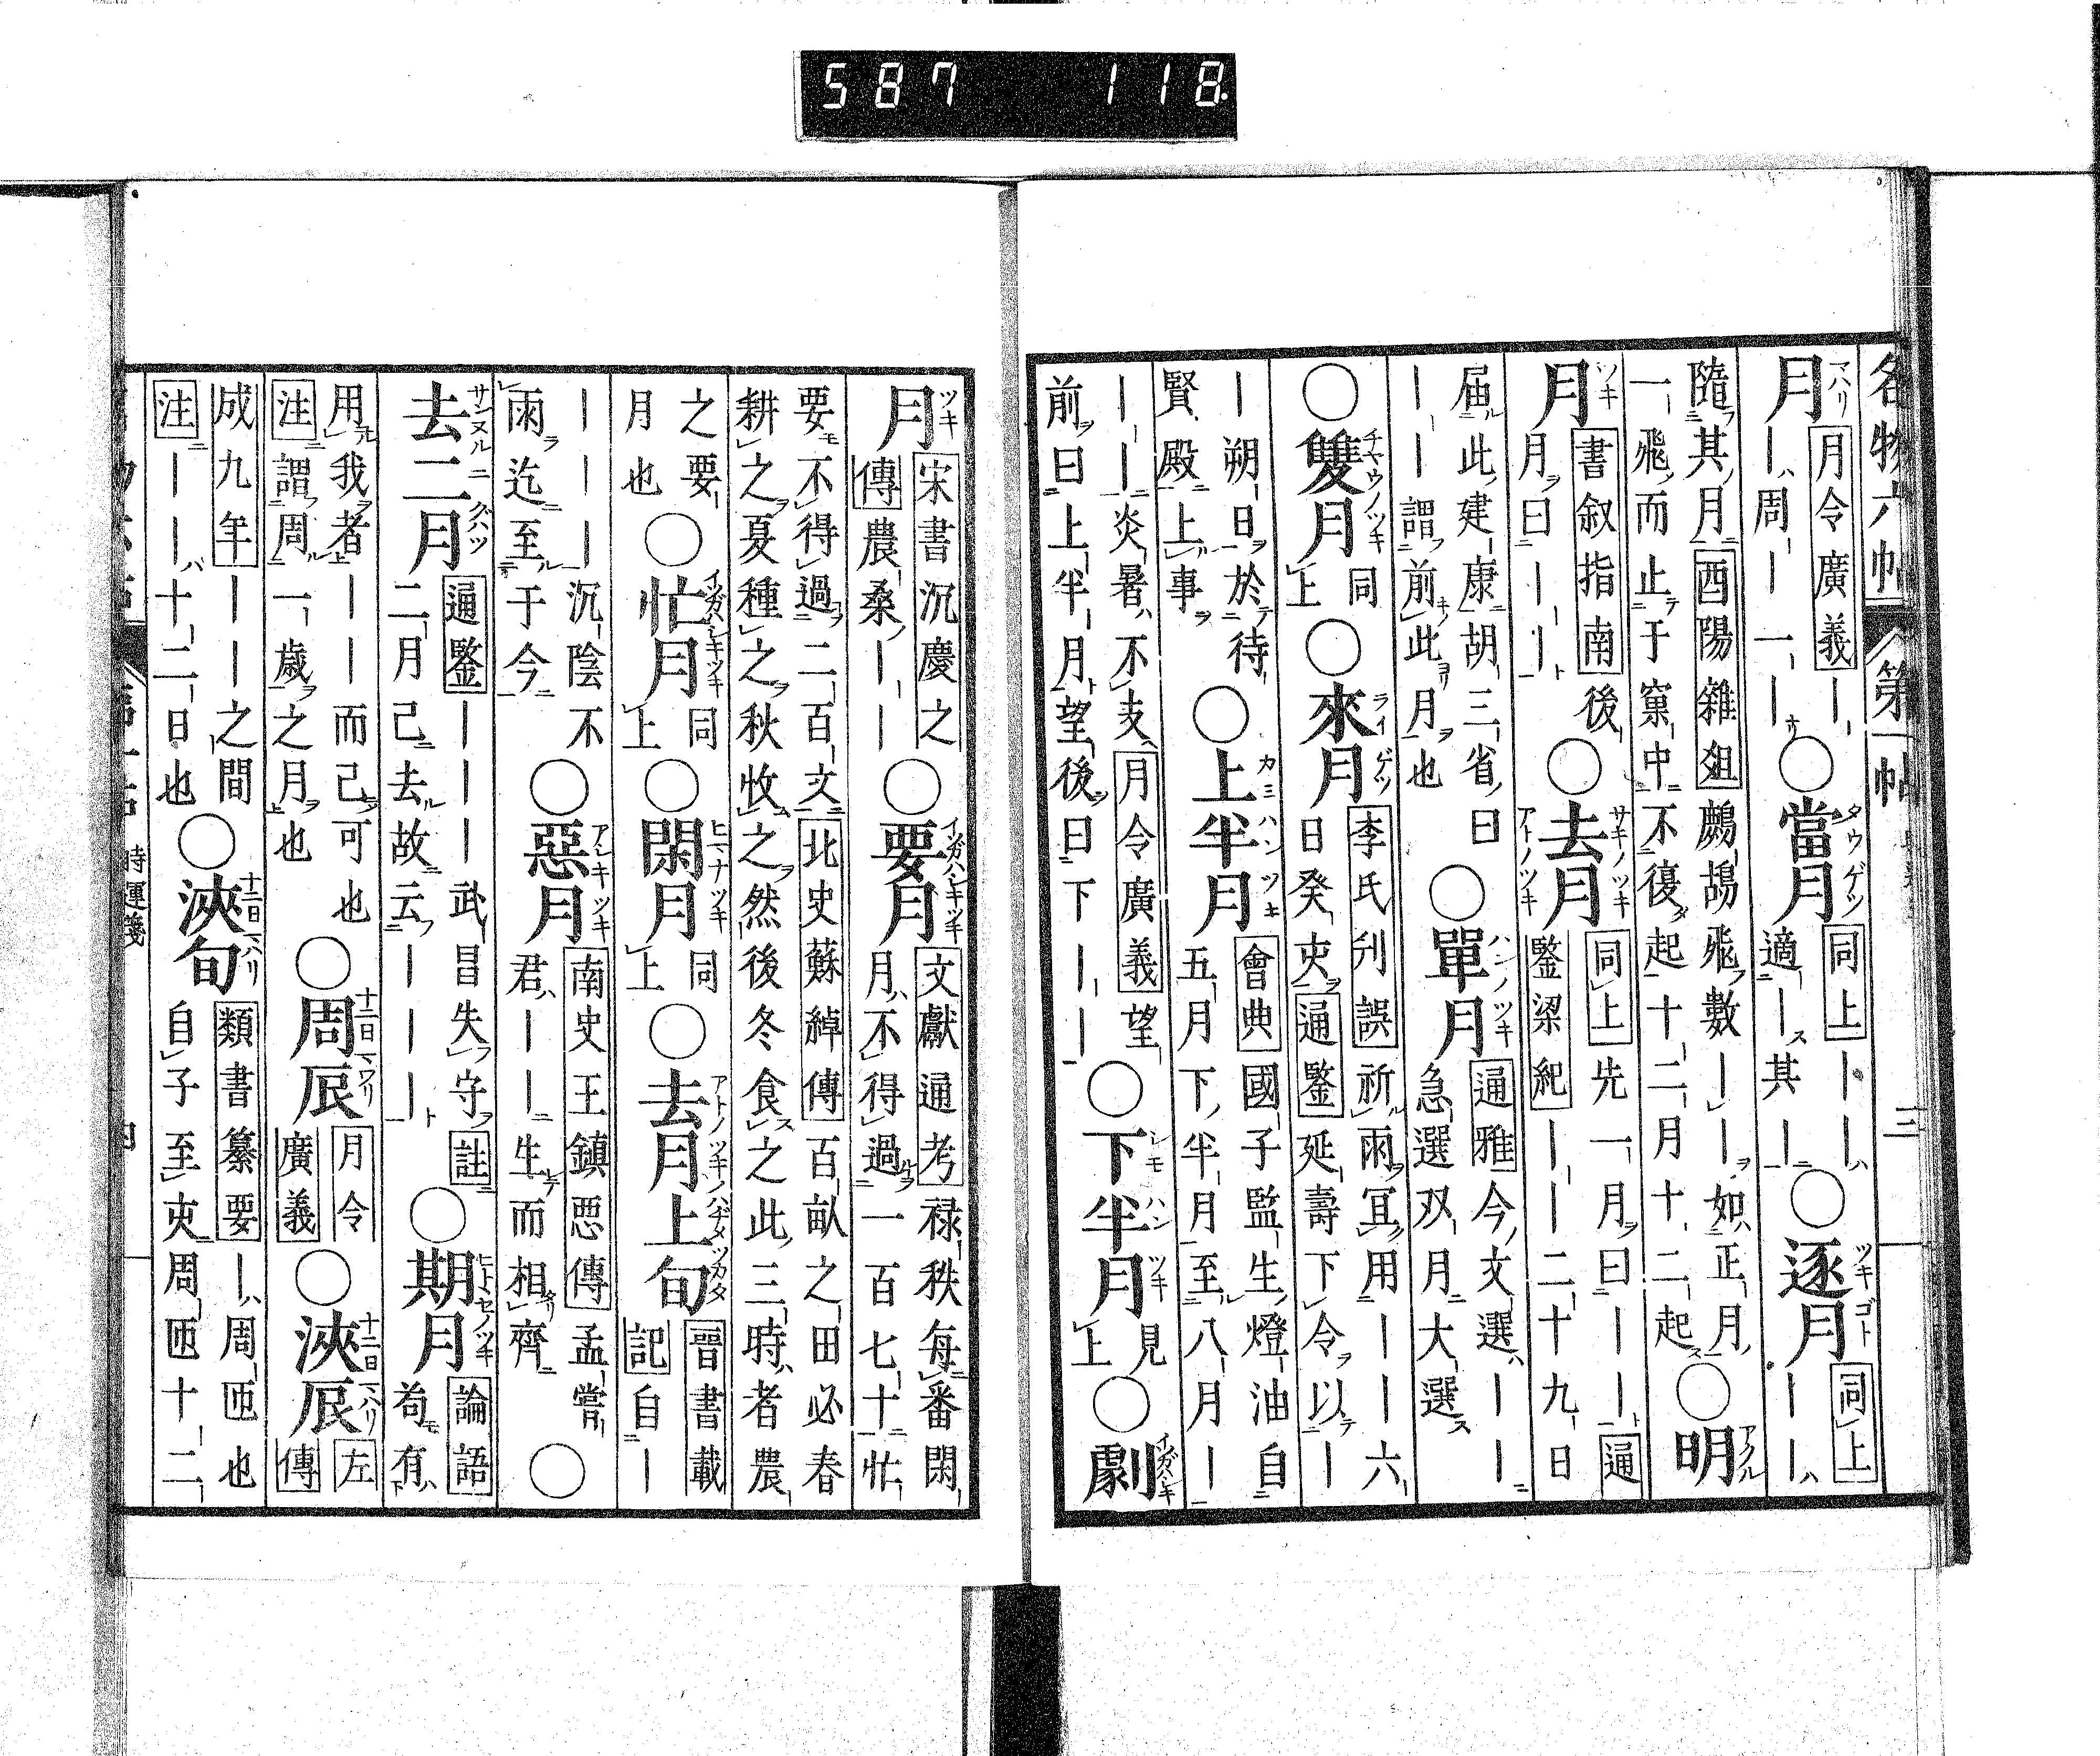 587 118
名物六帖 第一帖 三
月 月令廣義— —周—一— ○當月 同上—— 適—其— ○逐月 同上 ——
隨其月酉陽雜俎鷓鴣飛數——如正月 一飛而止于窠中不復起十二月十二起 ○明
月 書叙指南後 月曰—— ○去月 同上先一月曰——通 鑒梁紀——二十九日
届此建康胡三省曰 ——謂前此月也 ○單月 通雅今文選—— 急選双月大選
○雙月 同上 ○來月 李氏刋誤祈雨冝用——六 日癸夾通鑒延壽下令以—
—朔日於待 賢殿上事 ○上半月 會典國子監生燈油自 五月下半月至八月—
——炎暑不支月令廣義望 前曰上半月望後曰下—— ○下半月 見上 ○劇
月 宋書沉慶之 傳農桑—— ○要月 文獻通考禄秩每番閑 月不得過一百七十忙
要不得過二百文北史蘇綽傳百畝之田必春 耕之夏種之秋收之然後冬食之此三時者農
之要 月也 ○忙月 同上 ○閑月 同上 ○去月上旬 晉書載 記自—
———沉陰不 雨迄至于今 ○惡月 南史王鎮惡傳孟嘗 君——生而相齊 ○
去二月 通鑒———武昌失守註 二月己去故云——— ○期月 論語 苟有
用我者——而己可也 注謂周一歲之月也 ○周辰 月令 廣義 ○浹辰 左 傳
成九年——之間 注——十二日也 ○浹旬 類書纂要—周匝也 自子至夾周匝十二
時運箋